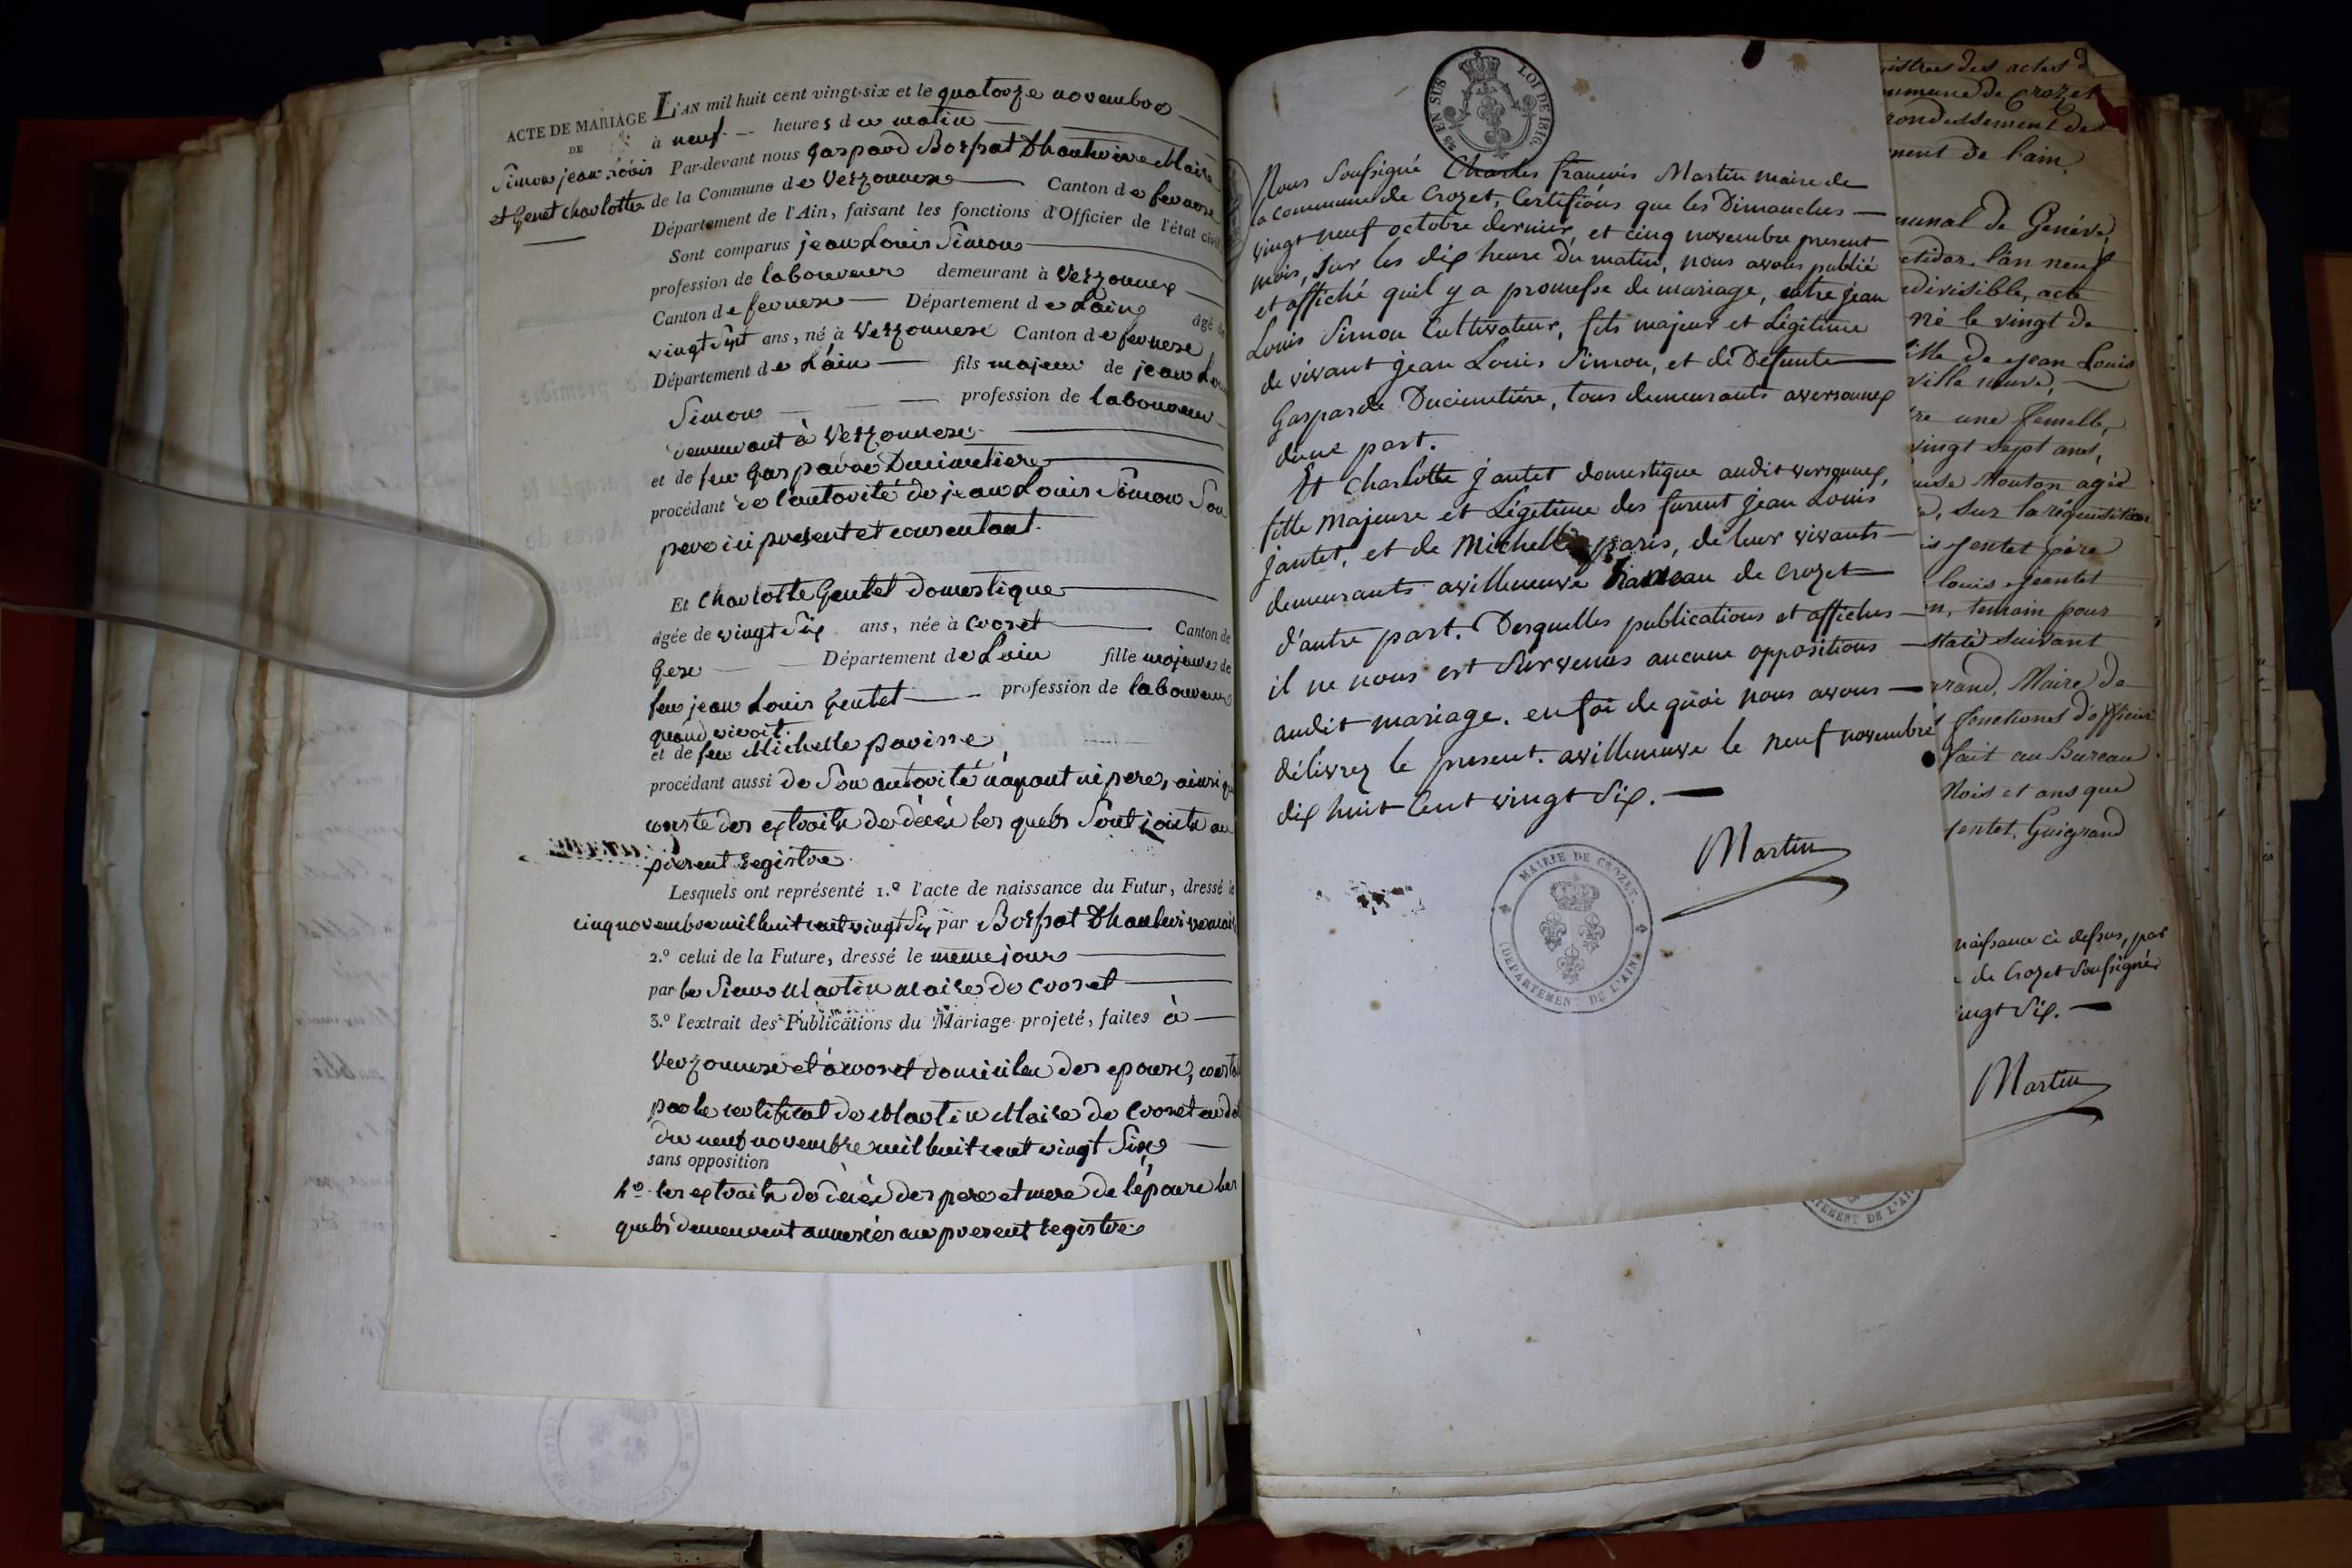 ACTE DE MARIAGE
DE
Simon jean Louis
et Gentet charlotte
L'AN mil huit cent vingt-six et le quatorze novembre
à neuf heures du matin
Par-devant nous gaspard Bospat Dhauteville Maire
de la Commune de Verzonnex Canton de fernex
Département de l'Ain, faisant les fonctions d'Officier de l'état civil
Sont comparus jean Louis Simon
profession de laboureur demeurant à Verzonnex
Canton de fernex Département de Lain âgé de
vingt Sept ans, né à Verzonnex Canton de fernex
Département de Lain fils majeur de jean Lou
Simon profession de laboureur
demeurant à Verzonnex
et de feue Gasparde Ducimetiere
procédant de l'autorité de jean Louis Simon Son
pere ici present et consentant.
Et Charlotte Gentet domestique
âgée de vingt Six ans, née à Crozet Canton de
Gex Département de Lain fille majeure de
feu jean Louis Gentet profession de laboureur
quand vivoit.
et de feue Michelle parisse
procédant aussi de Son autorité n'ayant ni pere, ainsi qu
conste des extraits de décès les quels Sont joints au
present registre
Lesquels ont représenté 1.º l'acte de naissance du Futur, dressé le
cinq novembre mil huit cent vingt Six par Bospat Dhauteville maire
2.º celui de la Future, dressé le meme jour
par le Sieur Martin Maire de Crozet
3.º l'extrait des Publications du Mariage projeté, faites à
Verzonnex et à Crozet domiciles des epoux, const
par le certificat de Martin Maire de Crozet en da
du neuf novembre mil huit cent vingt Six
sans opposition
4º les extraits de décès des pere et mere de l'épouse les
quels demeurent annexés au present registre
EN SUS
LOI DE 1816.
Nous Soussigné Charles françois Martin maire de
la commune de Crozet, Certifions que les Dimanches
vingt neuf octobre dernier, et cinq novembre present
mois, Sur les dix heure du matin, nous avons publié
et affiché quil y a promesse de mariage, entre jean
Louis Simon Cultivateur, fils majeur et Légitime
de vivant jean Louis Simon, et de Defunte
Gasparde Ducimetière, tous demeurants aversonnex
dune part.
Et Charlotte jantet domestique audit versonnex,
fille Majeure et Légitime des furent jean Louis
jantet, et de Michelle paris, de leur vivants
demeurants avilleneuve hameau de Crozet
d'autre part. Desquelles publications et affiches
il ne nous est Survenus aucune oppositions
audit mariage. en foi de quoi nous avons
délivrez le present. avilleneuve le neuf novembre
dix huit Cent vingt Six.
Martin
MAIRIE DE CROZET.
(DEPARTEMENT DE L'AIN)
istres des actes d
mmune de Crozet
rondissement de
ment de l'ain
munal de Genève,
ctidor l'an neuf
divisible, acte
né le vingt de
ille de Jean Louis
ville neuve,
re une femelle,
vingt sept ans,
uise Mouton agée
, sur la réquisition
is Jentet père
louis Jeantet
n, temoin pour
staté suivant
grand, Maire de
fonctions d'officier
fait au Bureau
Mois et ans que
Jentet, Guigrand
naissance ci dessus, par
de Crozet Soussigné
ingt Six.
Martin
TEMENT DE L'AI